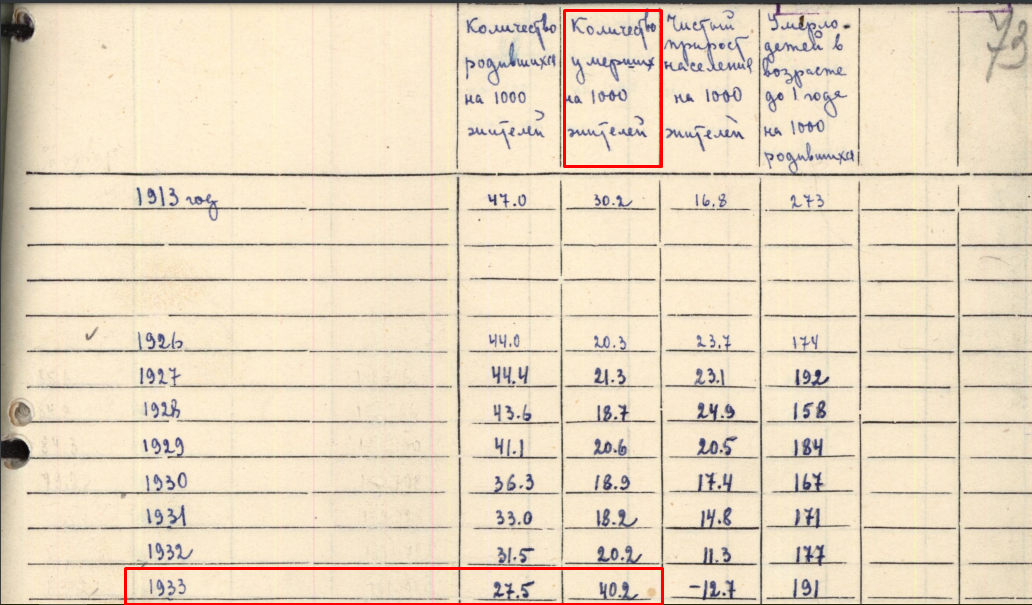 73
Количество родившихся на 1000 жителей | Количество умерших на 1000 жителей | Чистый прирост населения на 1000 жителей | Умерло детей в возрасте до 1 года на 1000 родившихся
1913 год 47.0 30.2 16.8 273
1926 44.0 20.3 23.7 174
1927 44.4 21.3 23.1 192
1928 43.6 18.7 24.9 158
1929 41.1 20.6 20.5 184
1930 36.3 18.9 17.4 167
1931 33.0 18.2 14.8 171
1932 31.5 20.2 11.3 177
1933 27.5 40.2 -12.7 191